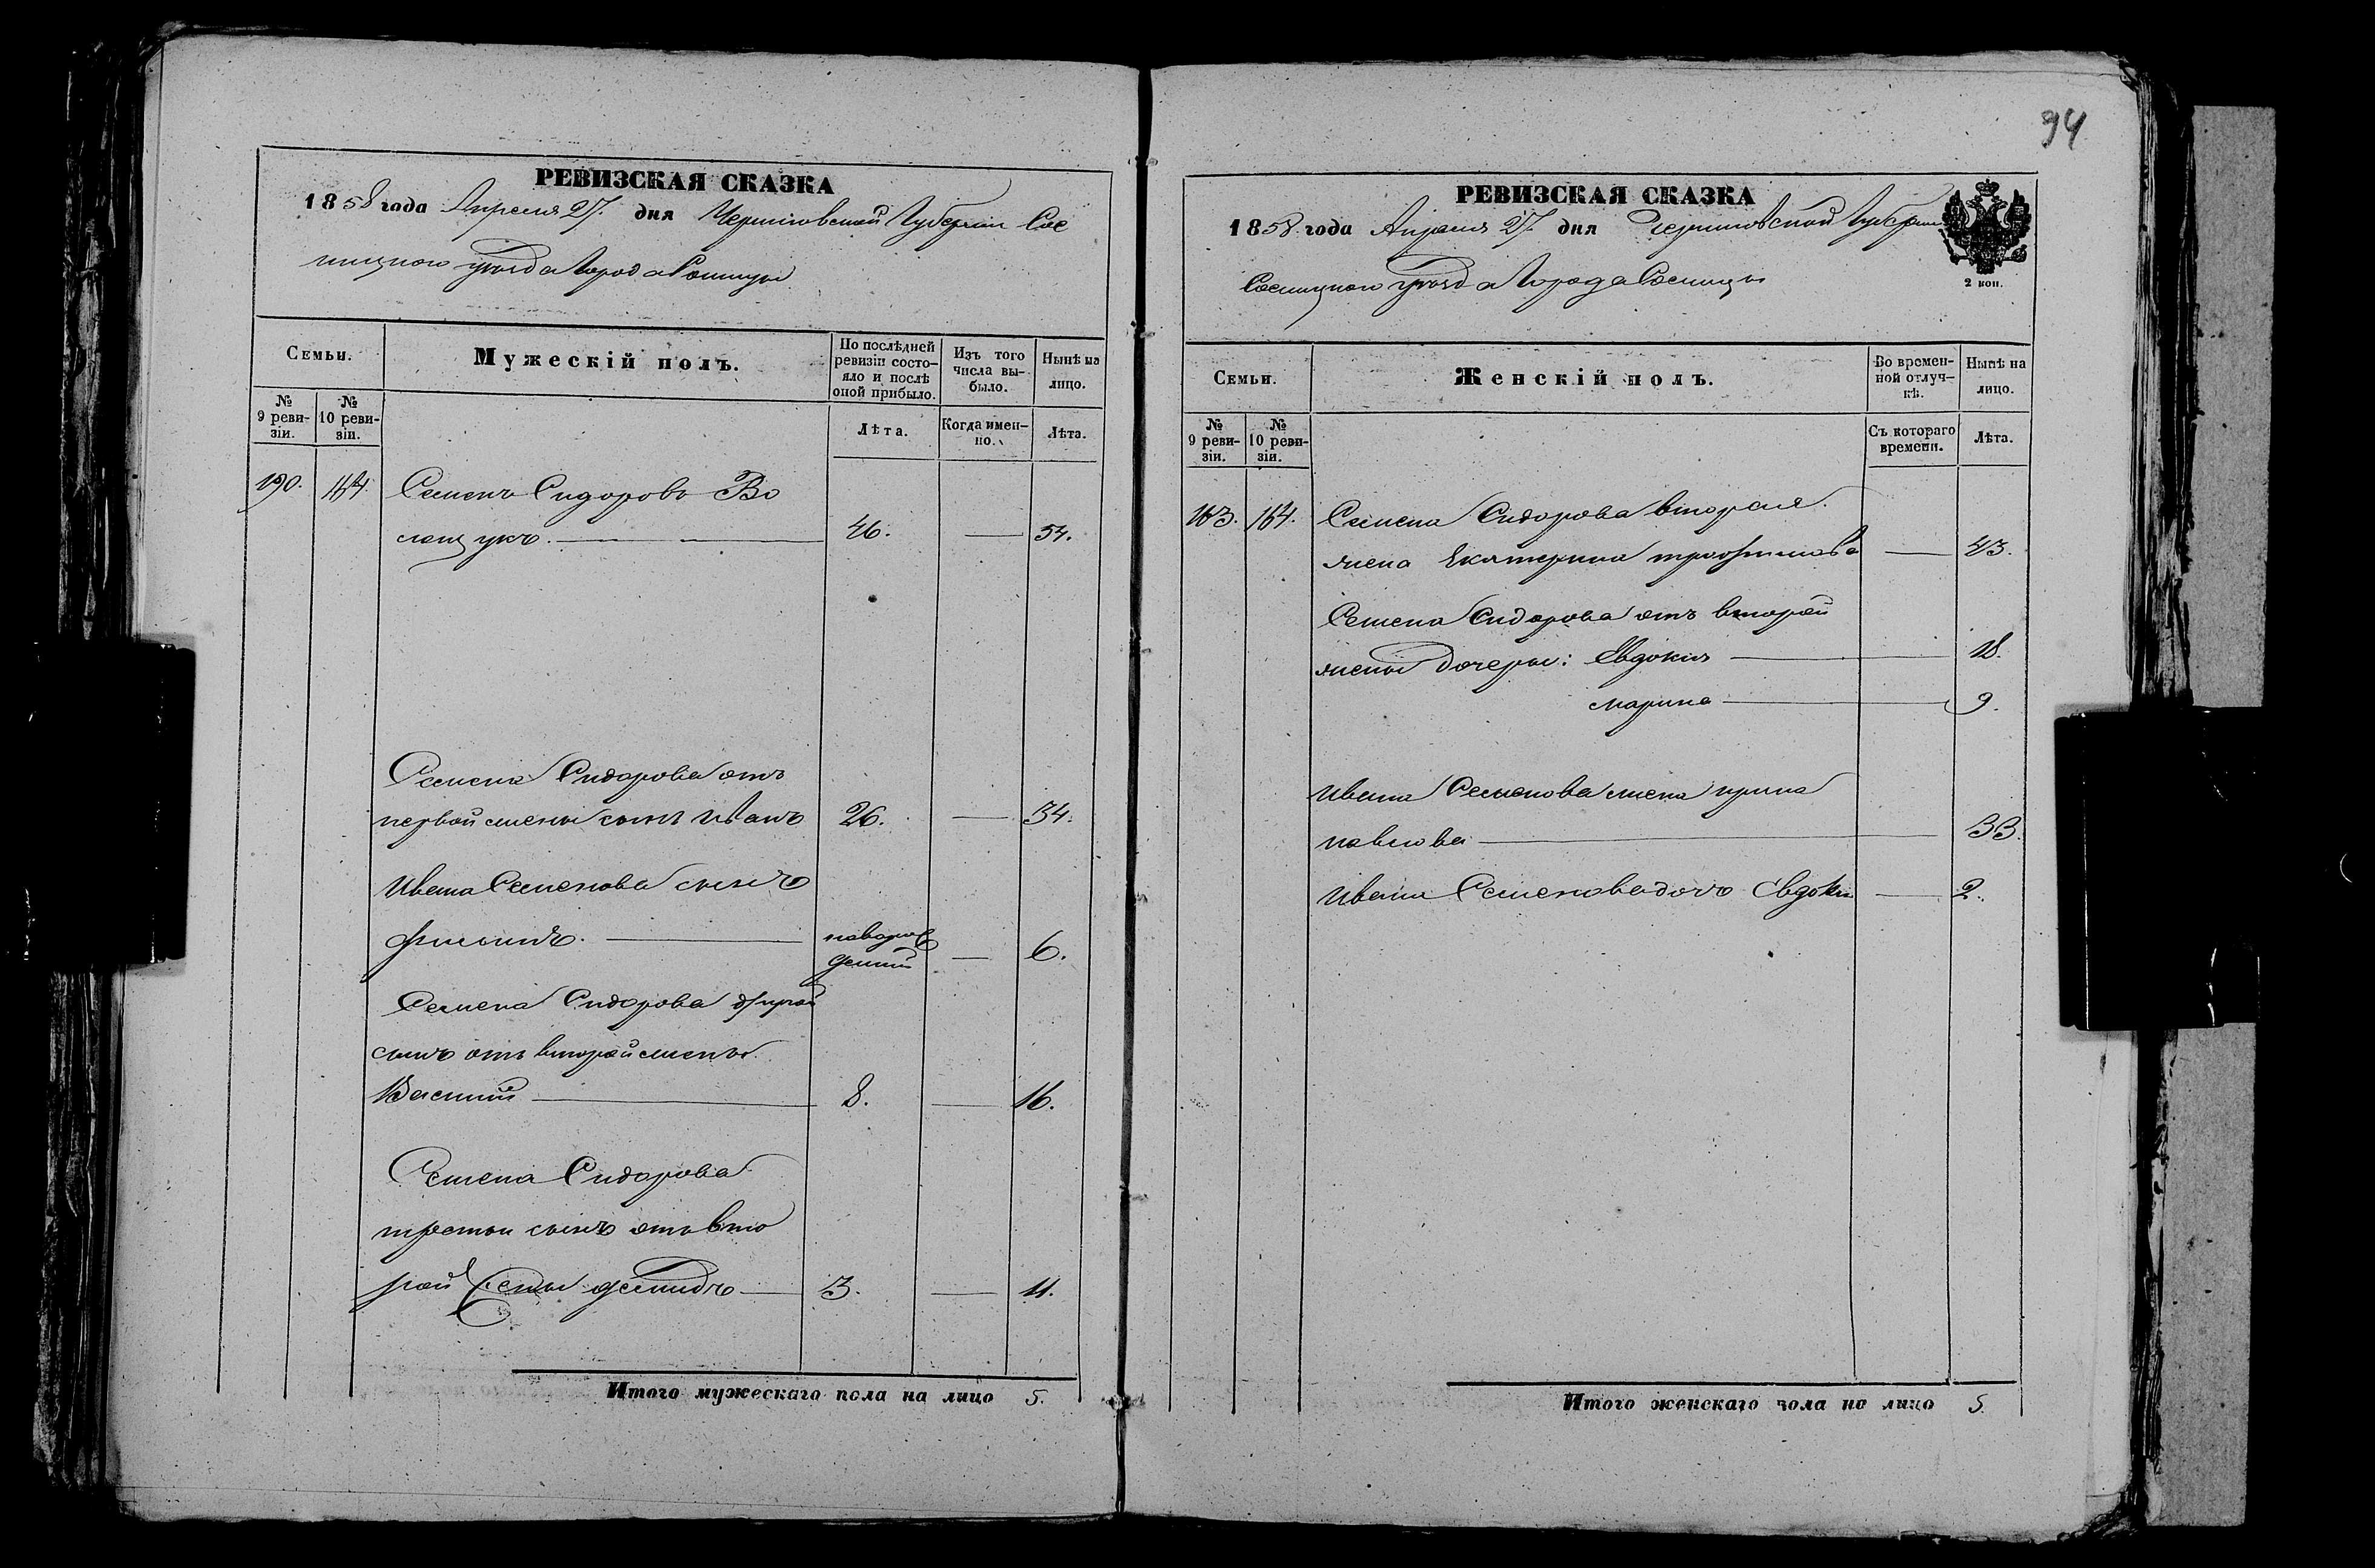 94
РЕВИЗСКАЯ СКАЗКА
1858 года Апреля 27. дня Черниговской Губернии Сос
ницкого уезда Города Сосницы
Семьи.
Мужескій полъ.
По послѣдней ревизіи состо-
яло и послѣ
оной прибыло.
Изъ того
числа вы-
было.
Нынѣ на
лицо.
№
9 реви-
зіи.
№
10 реви-
зіи.
Лѣта.
Когда имен-
но.
Лѣта.
190. 164. Семенъ Сидоровъ Во
лощукъ. 46. 54.
Семена Сидорова отъ
первой жены сынъ Иванъ 26. 34.
Ивана Семенова сынъ
Филипъ. новорож
деный 6.
Семена Сидорова другой
сынъ отъ второй жены
Василий 8. 16.
Семена Сидорова
третьи сынъ отъ вто
рой жены Демидъ 3. 11.
Итого мужескаго пола на лицо 5.
РЕВИЗСКАЯ СКАЗКА
1858 года Апреля 27. дня Черниговской Губернии
Сосницкого уезда Города Сосницы
2 коп.
Семьи.
Женскій полъ.
Во времен-
ной отлуч-
кѣ.
Нынѣ на
лицо.
№
9 реви-
зіи.
№
10 реви-
зіи.
Съ котораго
времени.
Лѣта.
163. 164. Семена Сидорова вторая
жена Екатерина трофимова 43.
Семена Сидорова отъ второй
жены дочеры: Евдокия 18.
марина 9.
Ивана Семенова жена ирина
павлова 33.
Ивана Семенова дочъ Евдокия 2.
Итого женскаго пола на лицо 5.